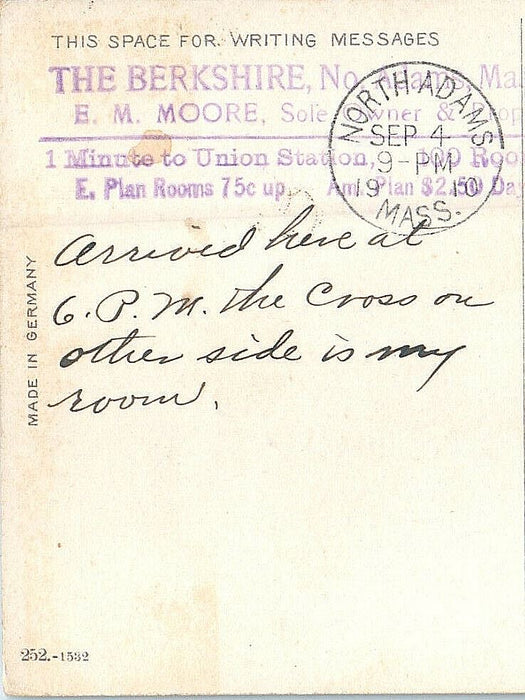 THIS SPACE FOR WRITING MESSAGES
THE BERKSHIRE, No. Adams, Ma
E. M. MOORE, Sole Owner & Prop
1 Minute to Union Station, 100 Roo
E. Plan Rooms 75c up, Am. Plan $2.50 Da
NORTH ADAMS
SEP 4
9-PM
19 10
MASS.
Arrived here at
6. P. M. The Cross on
other side is my
room.
MADE IN GERMANY
252.-1532